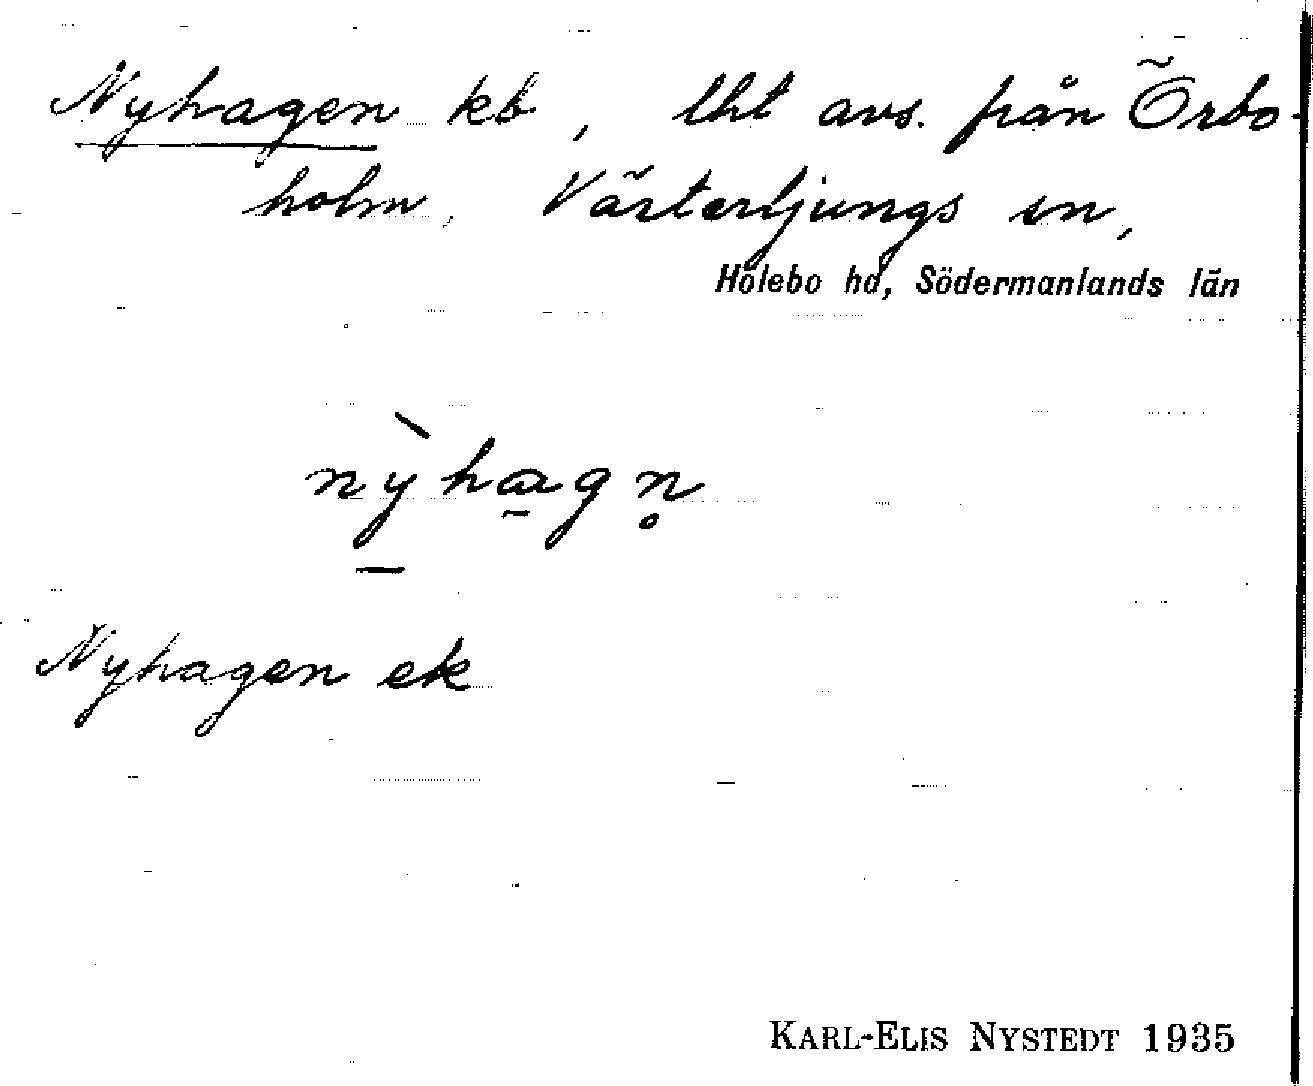 Nyhagen kb, lht avs. från Örbo-
holm, Västerljungs sn,
Hölebo hd, Södermanlands län
nỳhagn̥
Nyhagen ek
KARL-ELIS NYSTEDT 1935